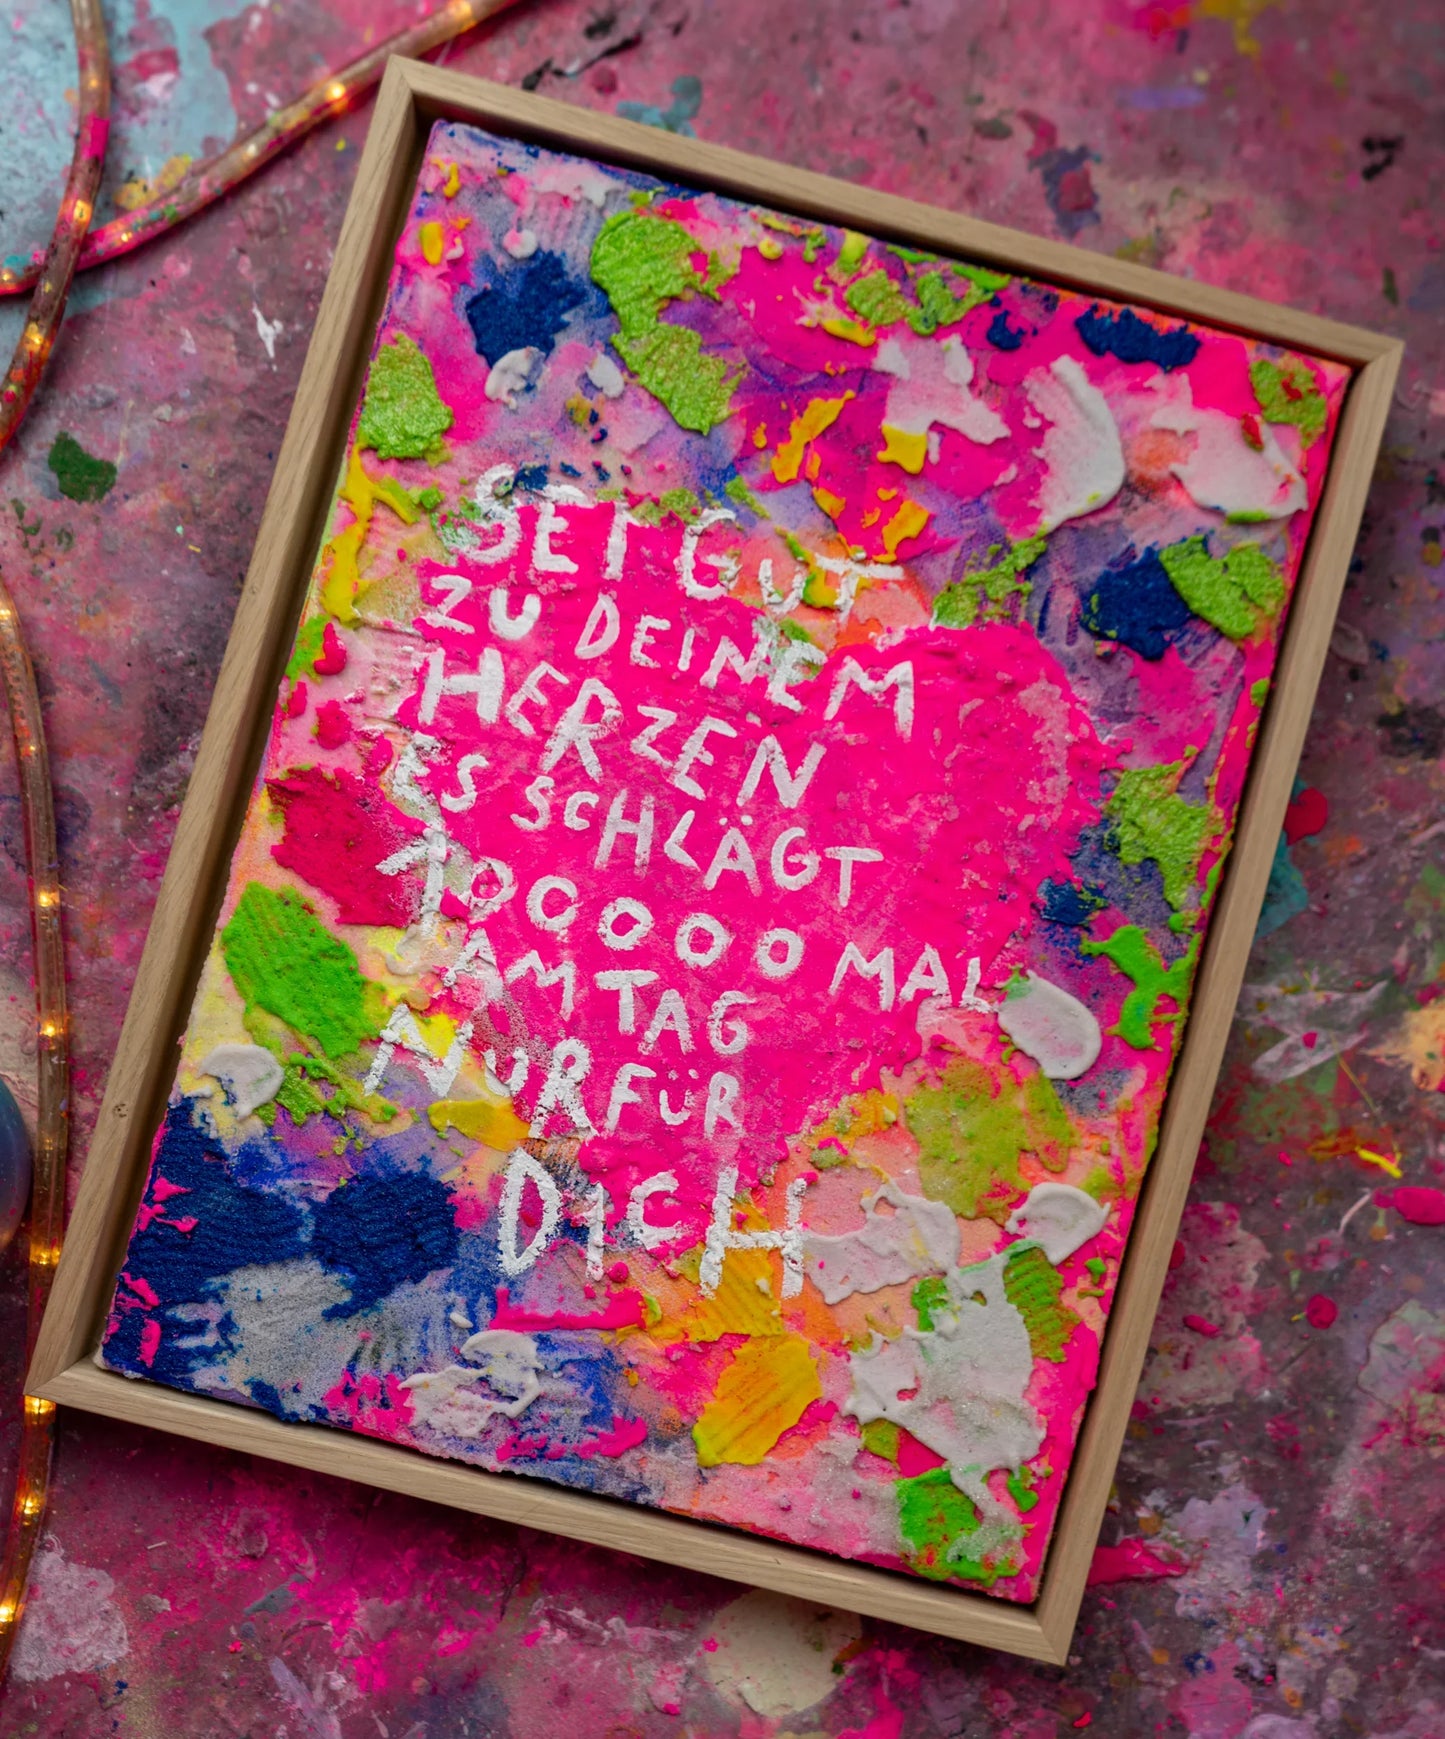 SEI GUT
ZU DEINEM
HERZEN
ES SCHLÄGT
100000 MAL
AM TAG
NUR FÜR
DICH